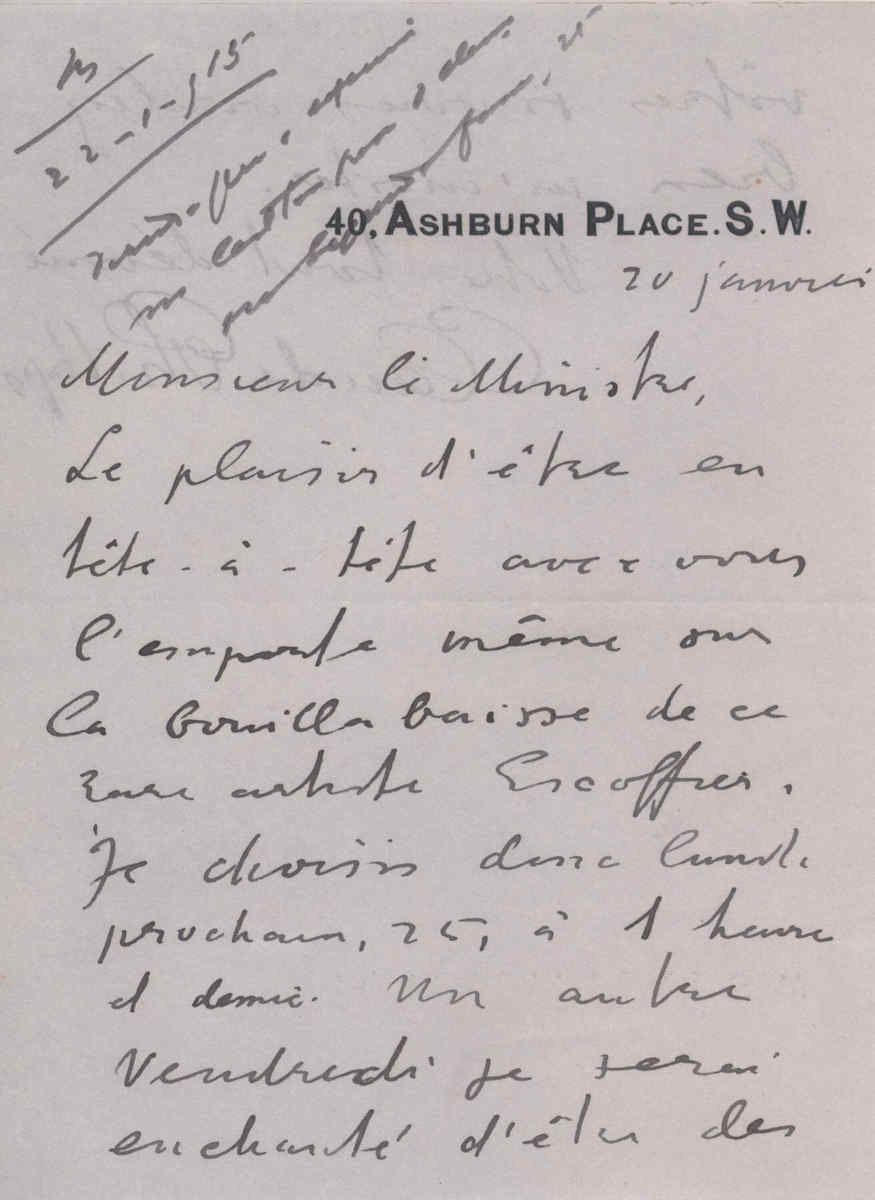 22-1-915
25
40, ASHBURN PLACE. S. W.
20 janvier
Monsieur le Ministre,
Le plaisir d'être en
tête-à-tête avec vous
l'emporte même sur
la bouillabaisse de ce
rare artiste Escoffier.
Je choisis donc lundi
prochain, 25, à 1 heure
et demie. Un autre
Vendredi je serai
enchanté d'être des